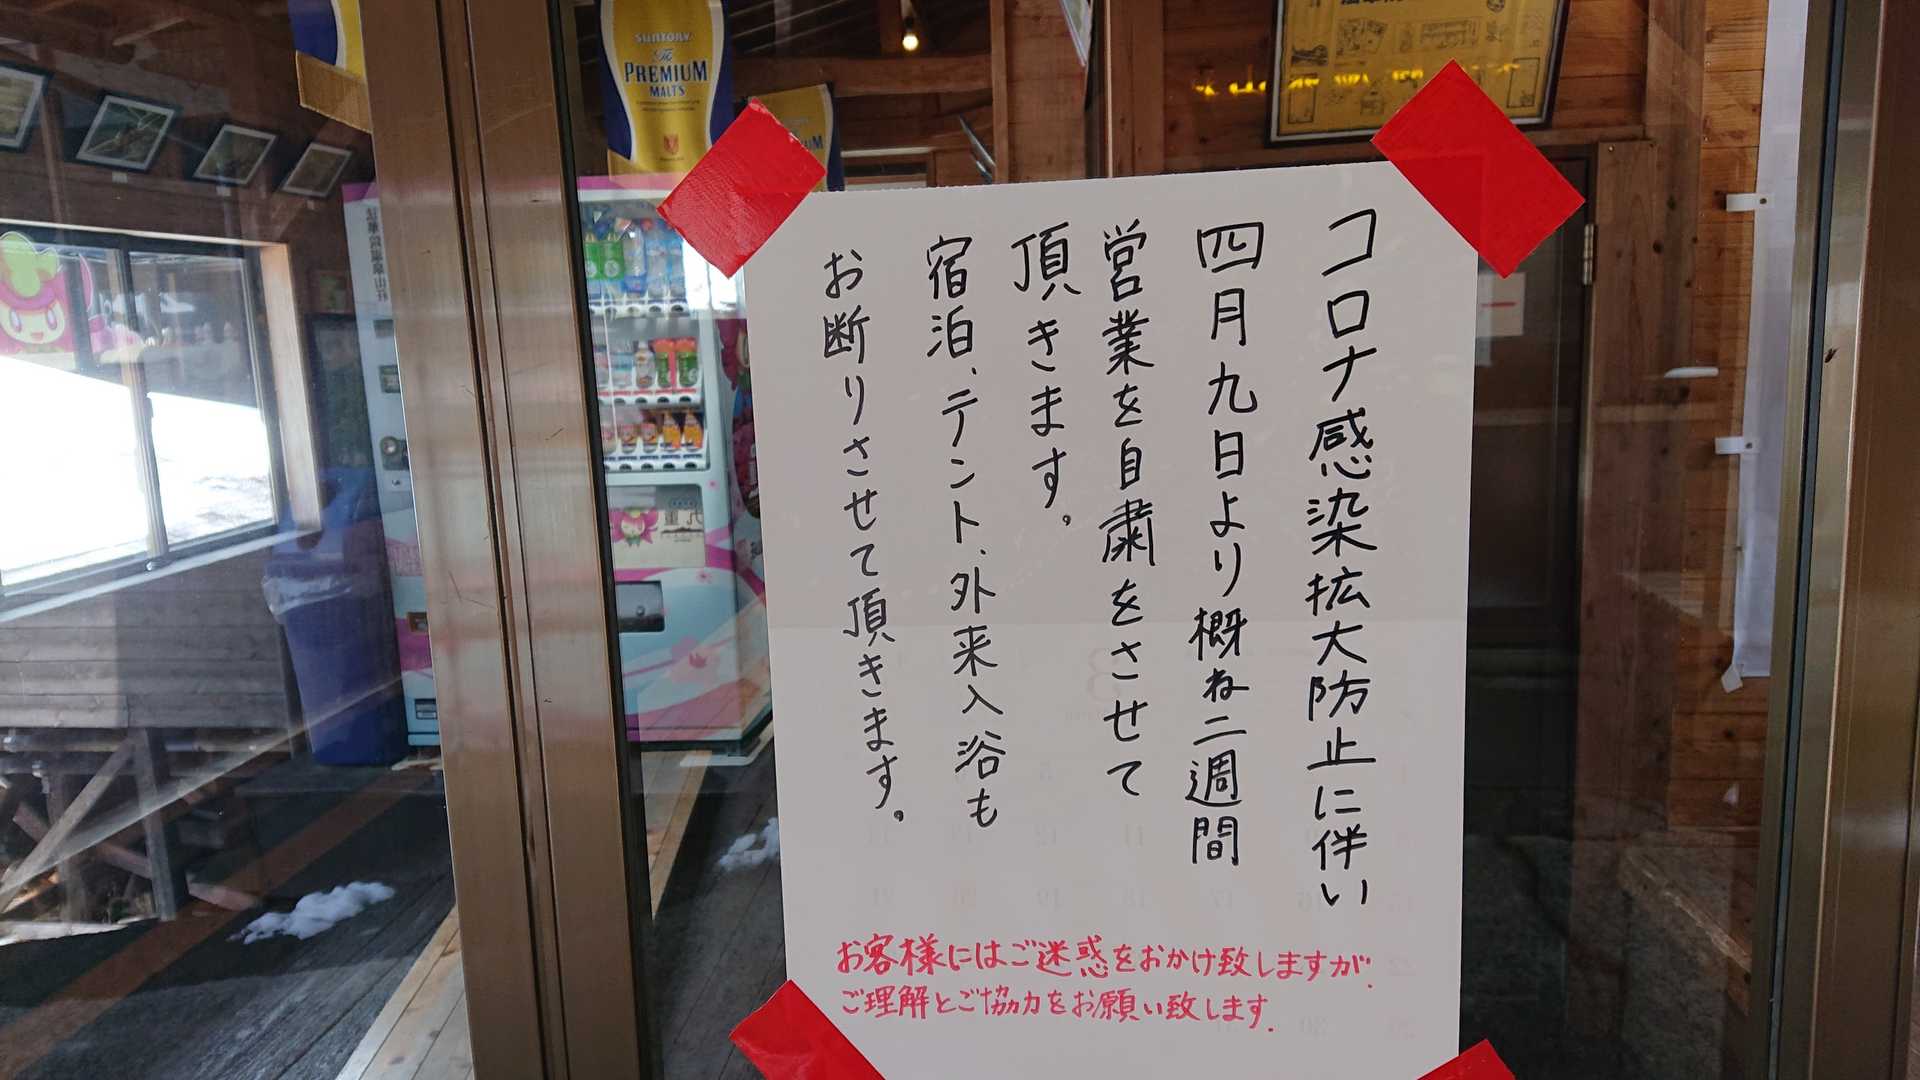 コロナ感染拡大防止に伴い
四月九日より概ね二週間
営業を自粛をさせて
頂きます。
宿泊、テント、外来入浴も
お断りさせて頂きます。
お客様にはご迷惑をおかけ致しますが、
ご理解とご協力をお願い致します.
SUNTORY
The
PREMIUM
MALTS
法華院温泉山荘